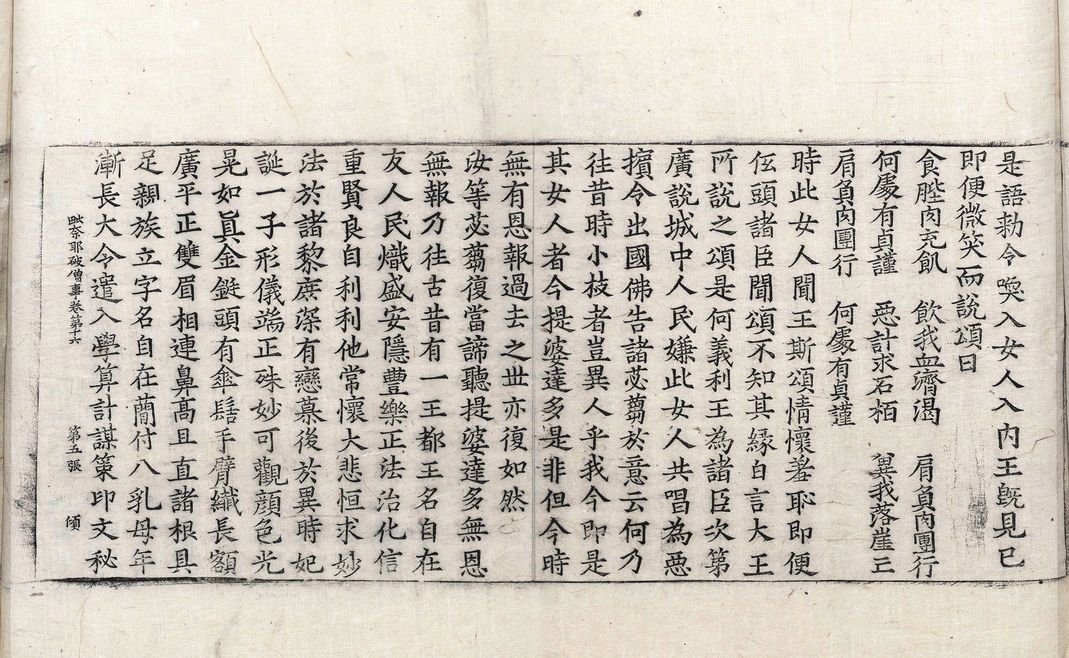 是語勅令喚入女人入內王旣見已
即便微笑而說頌曰
食䏶肉充飢 飲我血濟渴 肩負肉團行
何處有貞謹 惡計求石栢 異我落崖亡
肩負肉團行 何處有貞謹
時此女人聞王斯頌情懷羞恥即便
低頭諸臣聞頌不知其緣白言大王
所說之頌是何義利王為諸臣次第
廣說城中人民嫌此女人共唱為惡
擯令出國佛告諸苾蒭於意云何乃
往昔時小枝者豈異人乎我今即是
其女人者今提婆達多是非但今時
無有恩報過去之世亦復如然
汝等苾蒭復當諦聽提婆達多無恩
無報乃往古昔有一王都王名自在
友人民熾盛安隱豊樂正法治化信
重賢良自利利他常懷大悲恒求妙
法於諸黎庶深有戀慕後於異時妃
誕一子形儀端正殊妙可觀顔色光
晃如真金鋌頭有傘髻手臂纖長額
廣平正雙眉相連鼻高且直諸根具
足親族立字名自在蘭付八乳母年
漸長大令遣入學算計謀策印文秘
毗奈耶破僧事卷第十六 第五張 傾